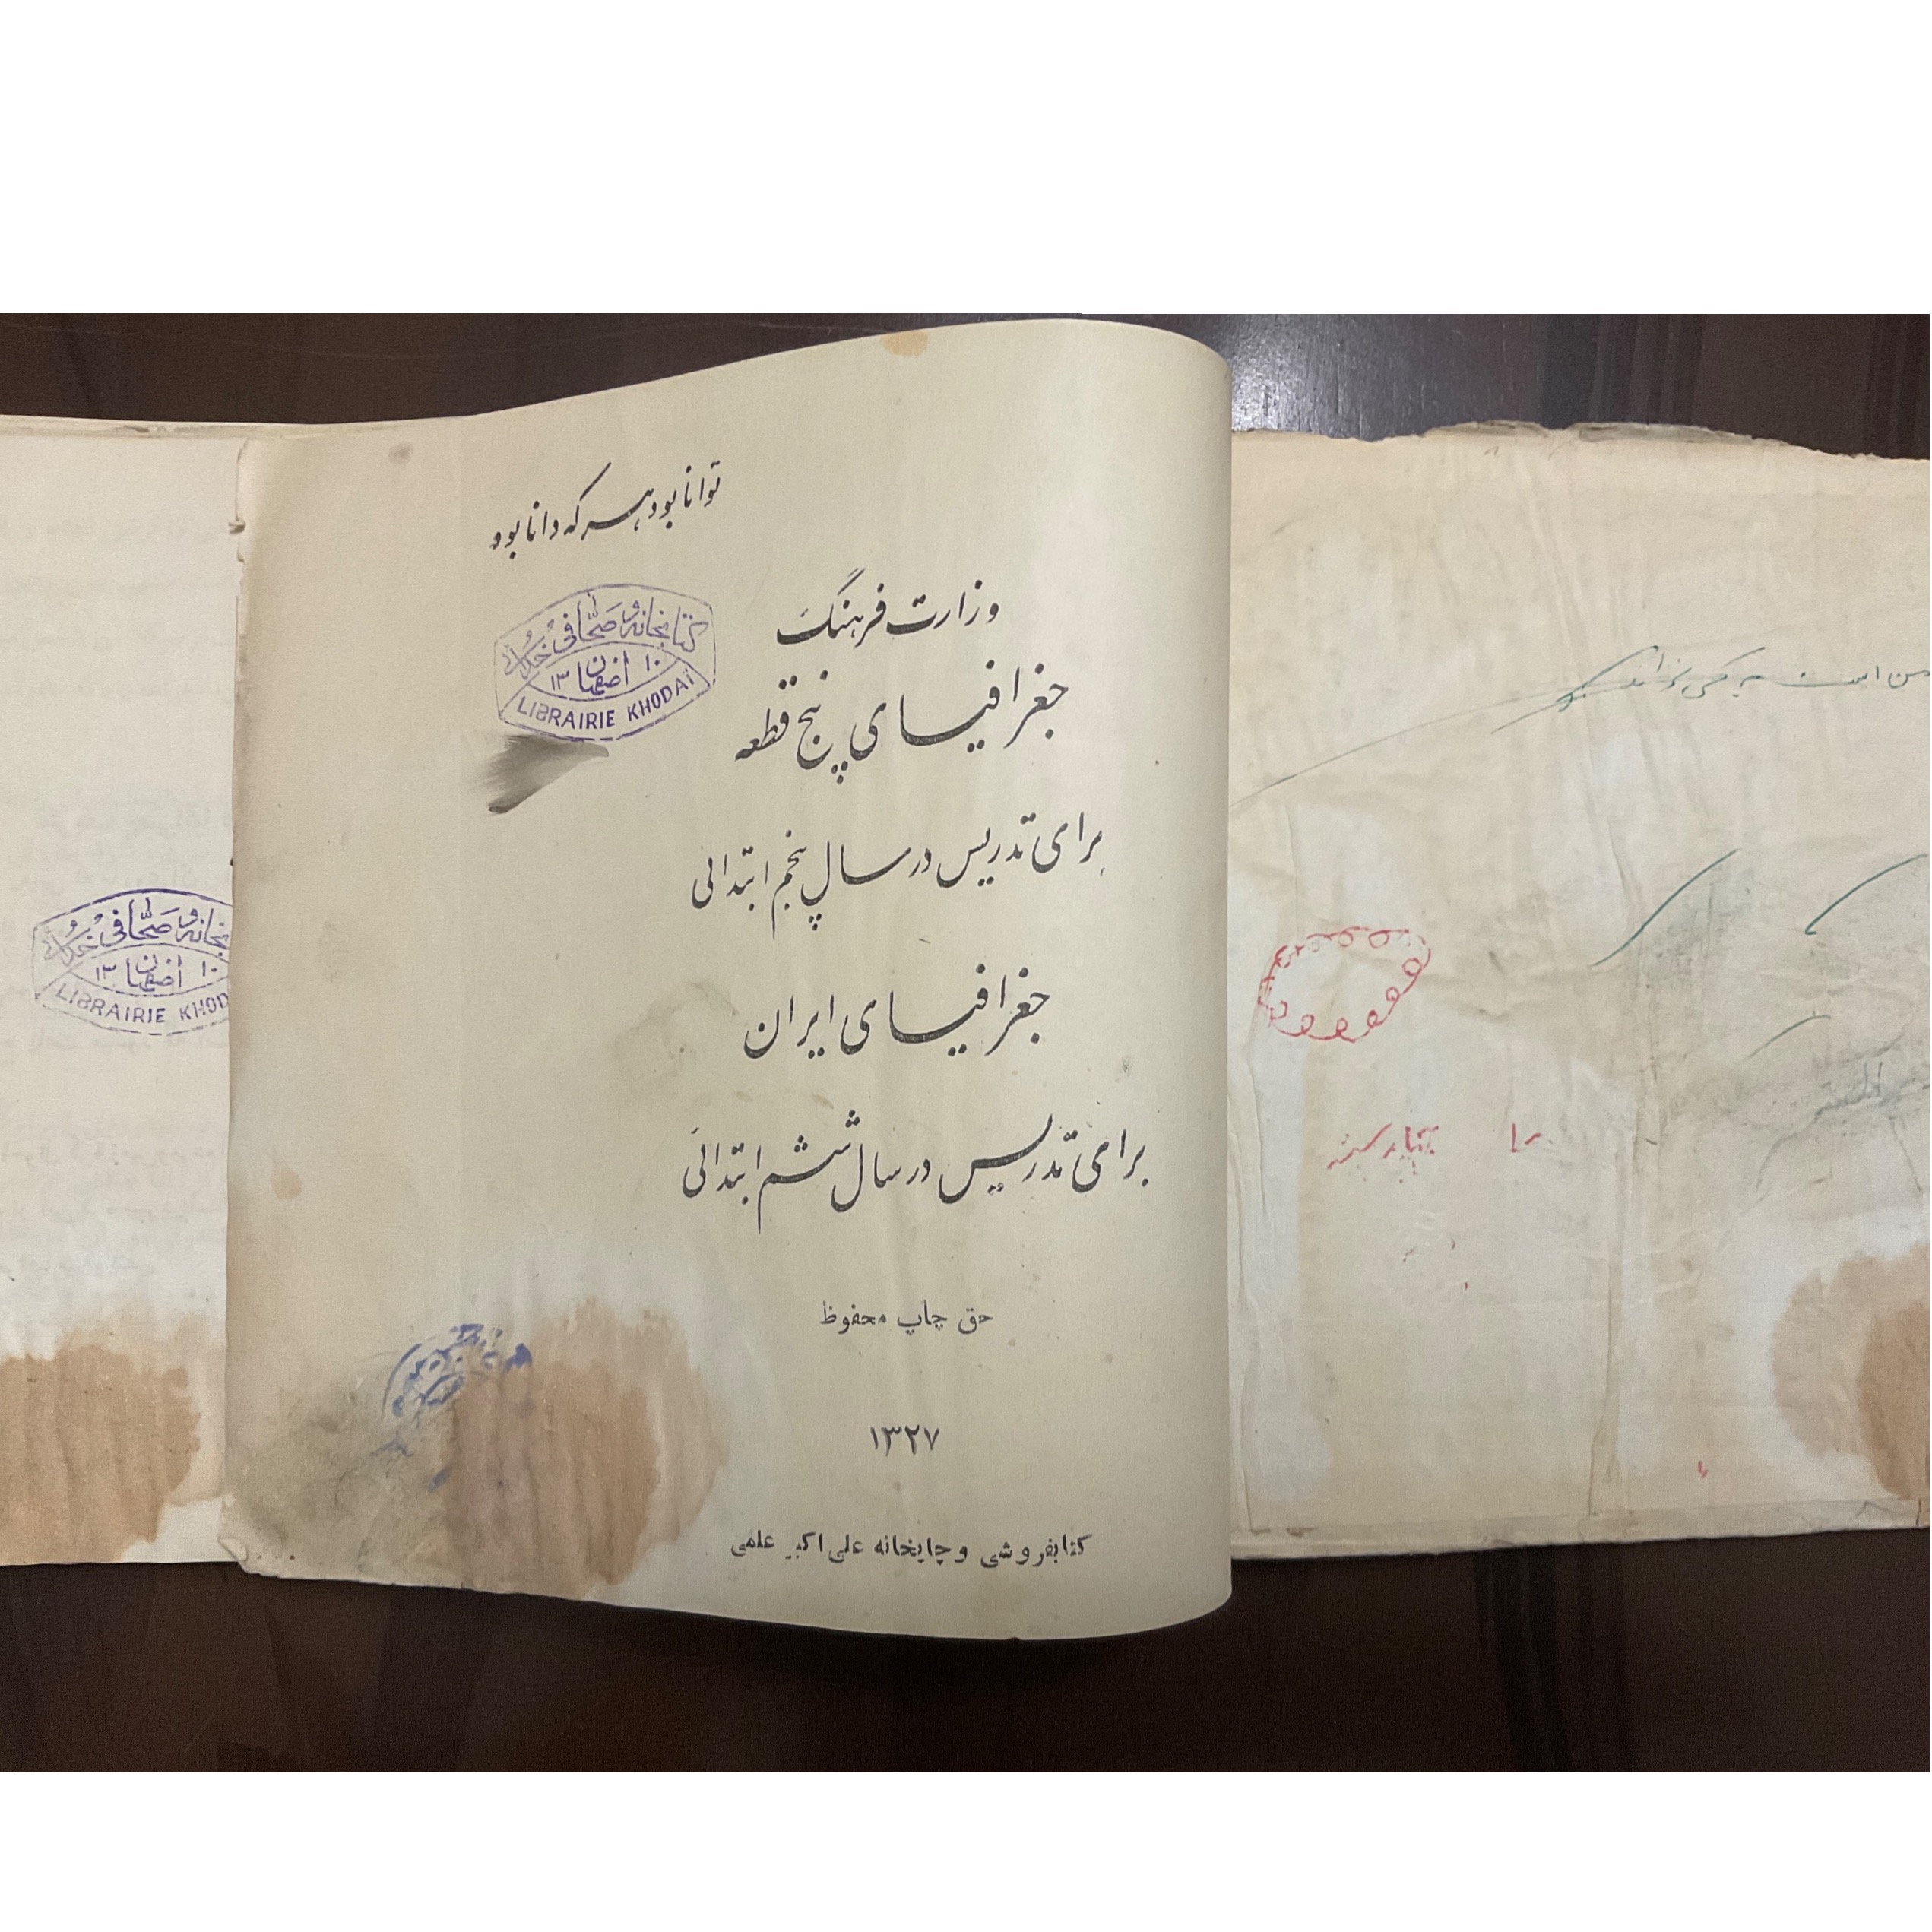 توانا بود هر که دانا بود
وزارت فرهنگ
کتابخانه و صحافی خدائی
۱۳ اصفهان ۱۰
LIBRAIRIE KHODAÏ
جغرافیای پنج قطعه
برای تدریس در سال پنجم ابتدائی
جغرافیای ایران
برای تدریس در سال ششم ابتدائی
حق چاپ محفوظ
۱۳۲۷
کتابفروشی و چاپخانه علی اکبر علمی
و صحافی خدائی
۱۳ اصفهان ۱۰
LIBRAIRIE KHOD